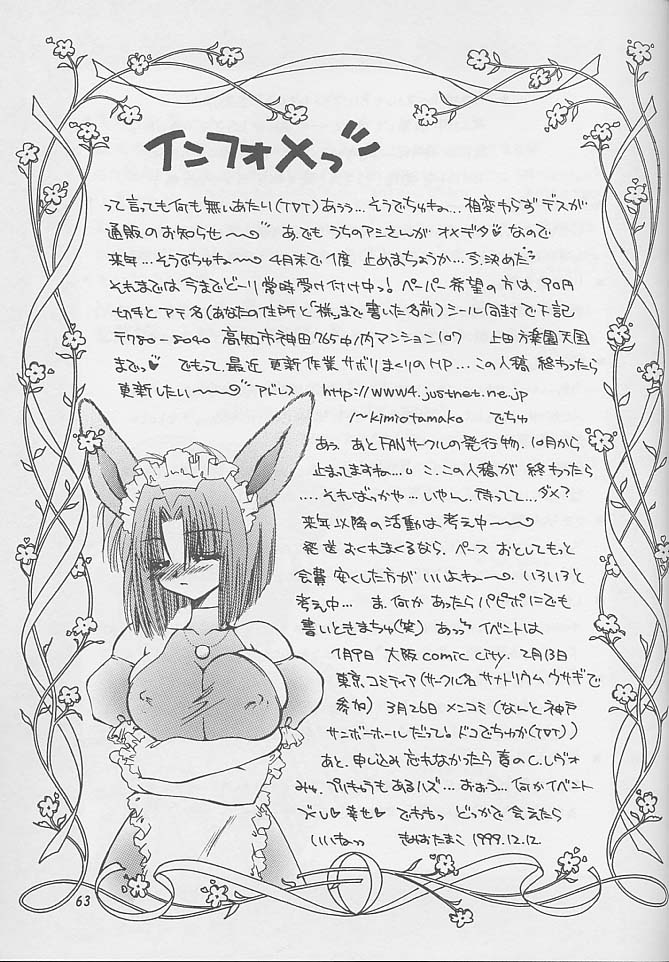 インフォメっ
って言っても何も無いあたり(TDT)あぅぅ…そうでちゅねー…相変わらずデスが
通販のお知らせ〜 あ、でも うちのアミさんが オメデタ♡なので
来年…そうでちゅねー 4月末で1度 止めまちょうか…今、決めた?
それまでは今までどーり常時受け付け中っ! ペーパー希望の方は、90円
切手とアテ名(あなたの住所と「様」まで書いた名前)シール同封で下記
〒780-8040 高知市神田765 マンション107 上田方楽園天国
までっ♡ でもって、最近 更新作業 サボりまくりのHP…この人稿 終わったら
更新したい〜 アドレス http://www4.justnet.ne.jp
/~kimiotamako でちゅ
あぅ、あとFANサークルの発行物、10月から
止まってますね…こ、この人稿が 終わったら
....そればっかや…いやん、待ってて…ダメ?
来年以降の活動は考え中〜
発送 おくれまくるなら、ペース おとしてもっと
会費 安くした方が いいよねー、いろいろと
考え中… ま、何か あったら パピポにでも
書いときまちゅ(笑) あっっ イベントは
1月9日 大阪comic city、2月13日
東京コミティア(サークル名 サナトリウムウサギで
参加) 3月26日 メンコミ(なんと神戸
サンボーホールだって。ドコでちゅか(TDT))
あと、申し込み 忘れなかったら 春のC.レヴォ
みゅ、ぷにきゅうもあるハズ…おぉぅ…何か イベント
ズレ♡幸せ♡ でわわっ どっかで 会えたら
いいねっっ きみおたまこ 1999.12.12.
63